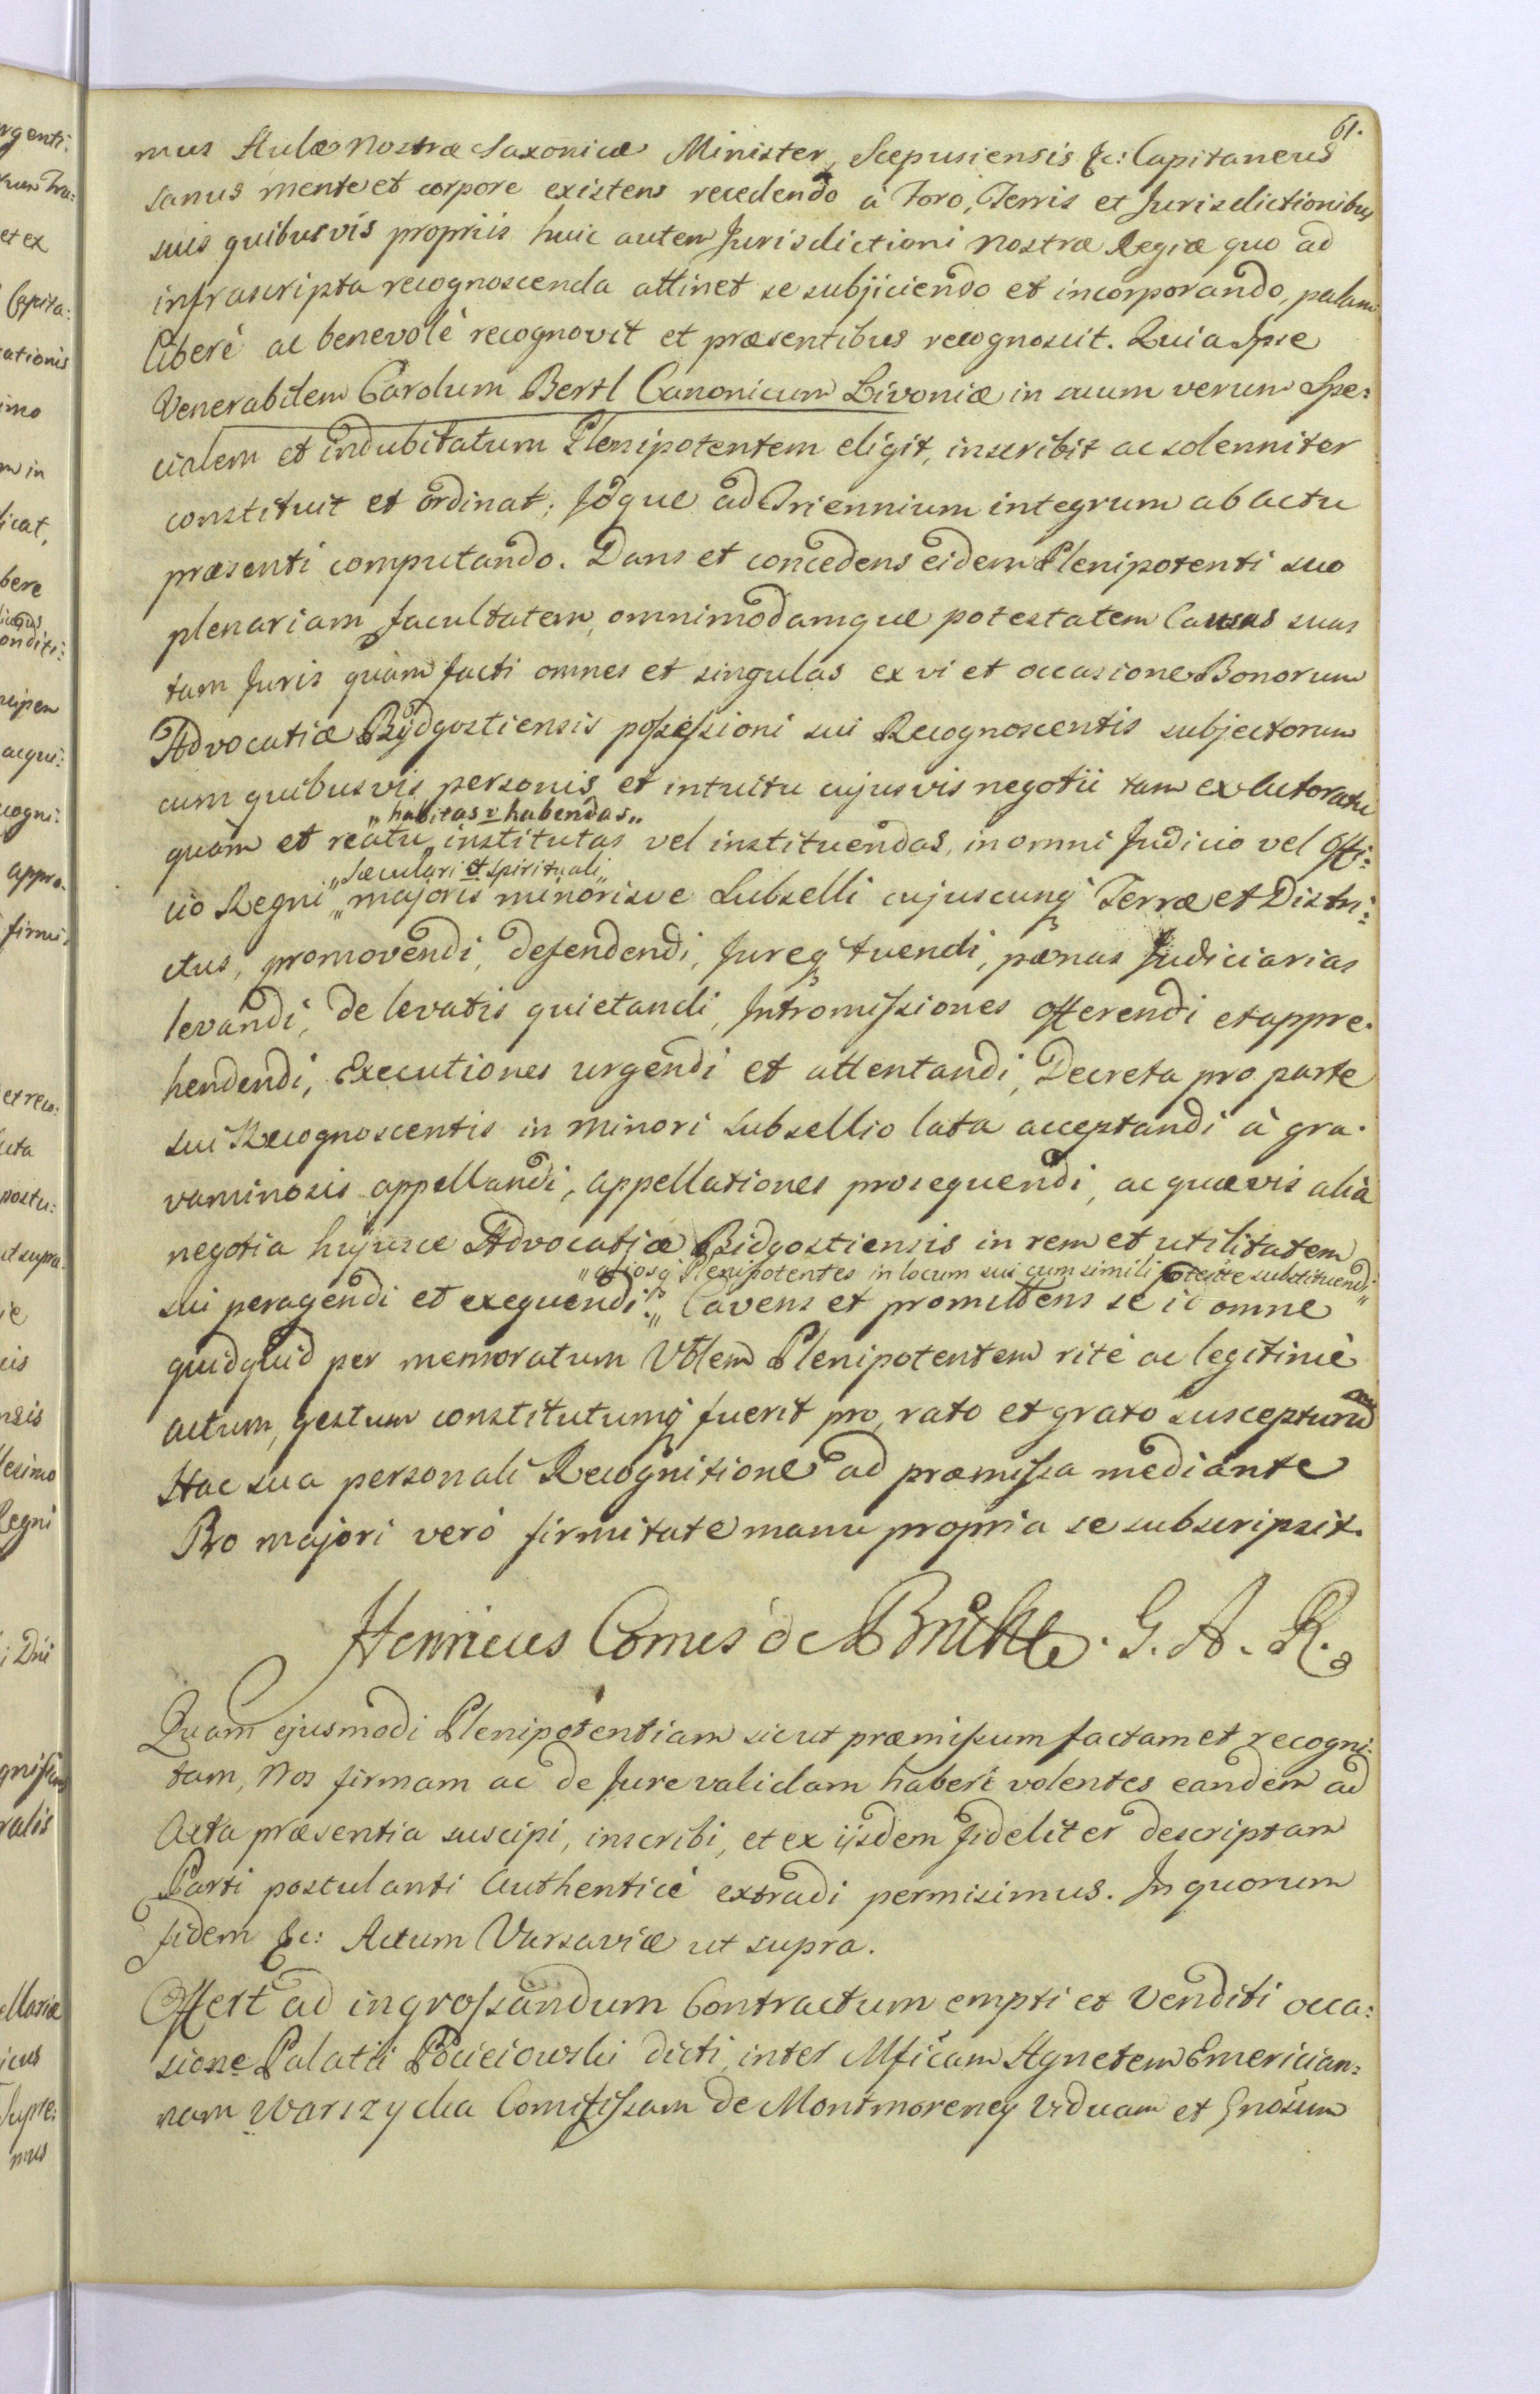 61.
mus Aulæ Nostræ Saxonicæ Minister, Scepusiensis &c: Capitaneus
sanus mente et corpore existens recedendo à Foro, Terris et Jurisdictionibus
suis quibusvis propriis huic autem Jurisdictioni Nostræ Regiæ quo ad
infrascripta recognoscenda attinet se subjiciendo et incorporando, palam
liberè ac benevolè recognovit et præsentibus recognoscit. Quia Ipse
Venerabilem Carolum Bertl Canonicum Livoniæ in suum verum Spe:
cialem et indubitatum Plenipotentem eligit, inscribit ac solenniter
constituit et ordinat; Idque ad Triennium integrum ab actu
præsenti computando. Dans et concedens eidem Plenipotenti suo
plenariam facultatem, omnimodamque potestatem Causas suas
tam Juris quàm facti omnes et singulas ex vi et occasione Bonorum
Advocatiæ Bydgostiensis possessioni sui Recognoscentis subjectorum
cum quibusvis personis et intuitu cujusvis negotii tam ex Actoratu
„habitas v habendas„
quàm et reatu „ institutas vel instituendas, in omni Judicio vel Offi:
„sæculari et spirituali„
cio Regni „ majoris minorisve Subselli cujuscunq Terræ et Distri:
ctus, promovendi, defendendi, Jureq tuendi, pænas Judiciarias
levandi, de levatis quietandi, Intromissiones offerendi et appre:
hendendi, Executiones urgendi et attentandi, Decreta pro parte
sui Recognoscentis in minori subsellio lata acceptandi à gra:
vaminosis appellandi, appellationes prosequendi, ac quævis alia
negotia hujusce Advocatiæ Bidgostiensis in rem et utilitatem
„aliosq Plenipotentes in locum sui cum simili potestte substituendi„
sui peragendi et exequendi. „ Cavens et promittens se id omne
quidquid per memoratum Vblem Plenipotentem ritè ac legitimè
actum, gestum constitutumq fuerit pro rato et grato suscepturum
Hac sua personali Recognitione ad præmissa mediante
Pro majori verò firmitate manu propria se subscripsit.
Henricus Comes de Brühl. G. A. R.
Quam ejusmodi Plenipotentiam sicut præmissum factam et recogni:
tam, Nos firmam ac de Jure validam haberi volentes eandem ad
Acta præsentia suscipi, inscribi, et ex iisdem fideliter descriptam
Parti postulanti Authenticè extradi permisimus. In quorum
fidem &c: Actum Varsaviæ ut supra.
Offert ad ingrossandum Contractum empti et venditi occa:
sione Palatii Pociejowski dicti inter Mficam Agnetem Emerician:
nam Warszycka Comitissam de Montmorency Viduam et Gnosum